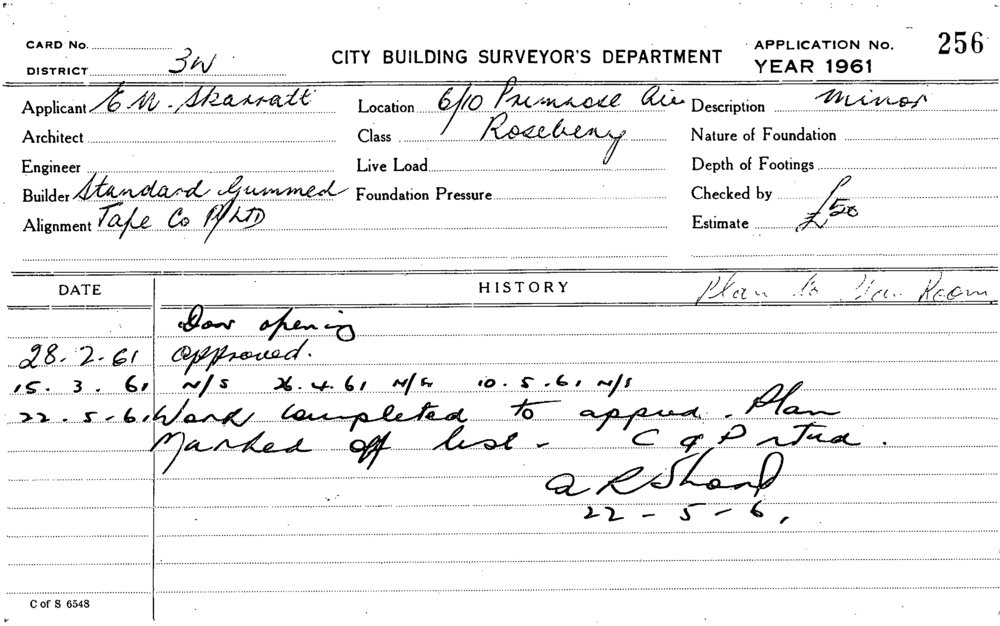 CARD No.
DISTRICT 3W
CITY BUILDING SURVEYOR'S DEPARTMENT
APPLICATION No. 256
YEAR 1961
Applicant E N. Skarratt
Location 6/10 Primrose Ave
Description Minor
Architect
Class Rosebery
Nature of Foundation
Engineer
Live Load
Depth of Footings
Builder Standard Gummed
Foundation Pressure
Checked by
Alignment Tape Co P/LTD
Estimate £50
DATE
HISTORY
Plan to Plan Room
Door opening
28.2.61 approved.
15.3.61 N/S 26.4.61 N/S 10.5.61 N/S
22-5-61 Work completed to apprvd. Plan
Marked off list - C & P rtnd.
A R Sharp
22-5-6,
C of S 6548